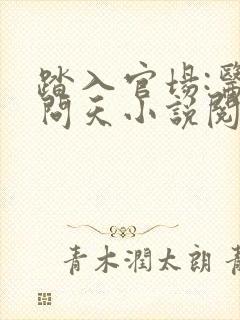 踏入官场:醫
問天小説閱
青木潤太朗 青